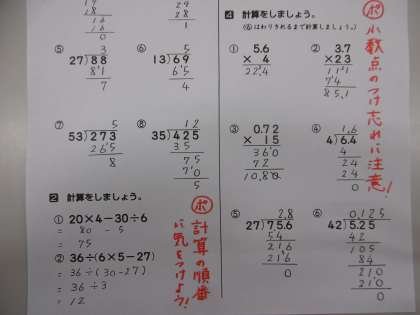 19
16
16
0
19
28
1
⑤
3
27)88
81
7
⑥
5
13)69
65
4
⑦
5
53)273
265
8
⑧
12
35)425
35
75
70
5
2 計算をしましょう。
① 20×4－30÷6
= 80 - 5
= 75
② 36÷(6×5－27)
= 36÷(30-27)
= 36÷3
= 12
ポ 計算の順番
に気をつけよう!
4 計算をしましょう。
(⑥はわりきれるまで計算しましょう。)
① 5.6
× 4
22.4
② 3.7
×23
111
74
85.1
③ 0.72
× 15
360
72
10.80
④
1.6
4)6.4
4
24
24
0
⑤
2.8
27)75.6
54
216
216
0
⑥
0.125
42)5.25
42
105
84
210
210
0
ポ 小数点のつけ忘れに注意!